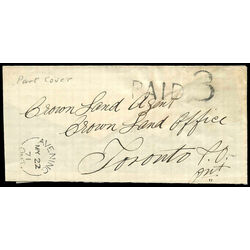 Part Cover
PAID 3
Crown Land Agent
Crown Land Office
Toronto P.O.
Ont
EVENING
MY 22
71
ONT.